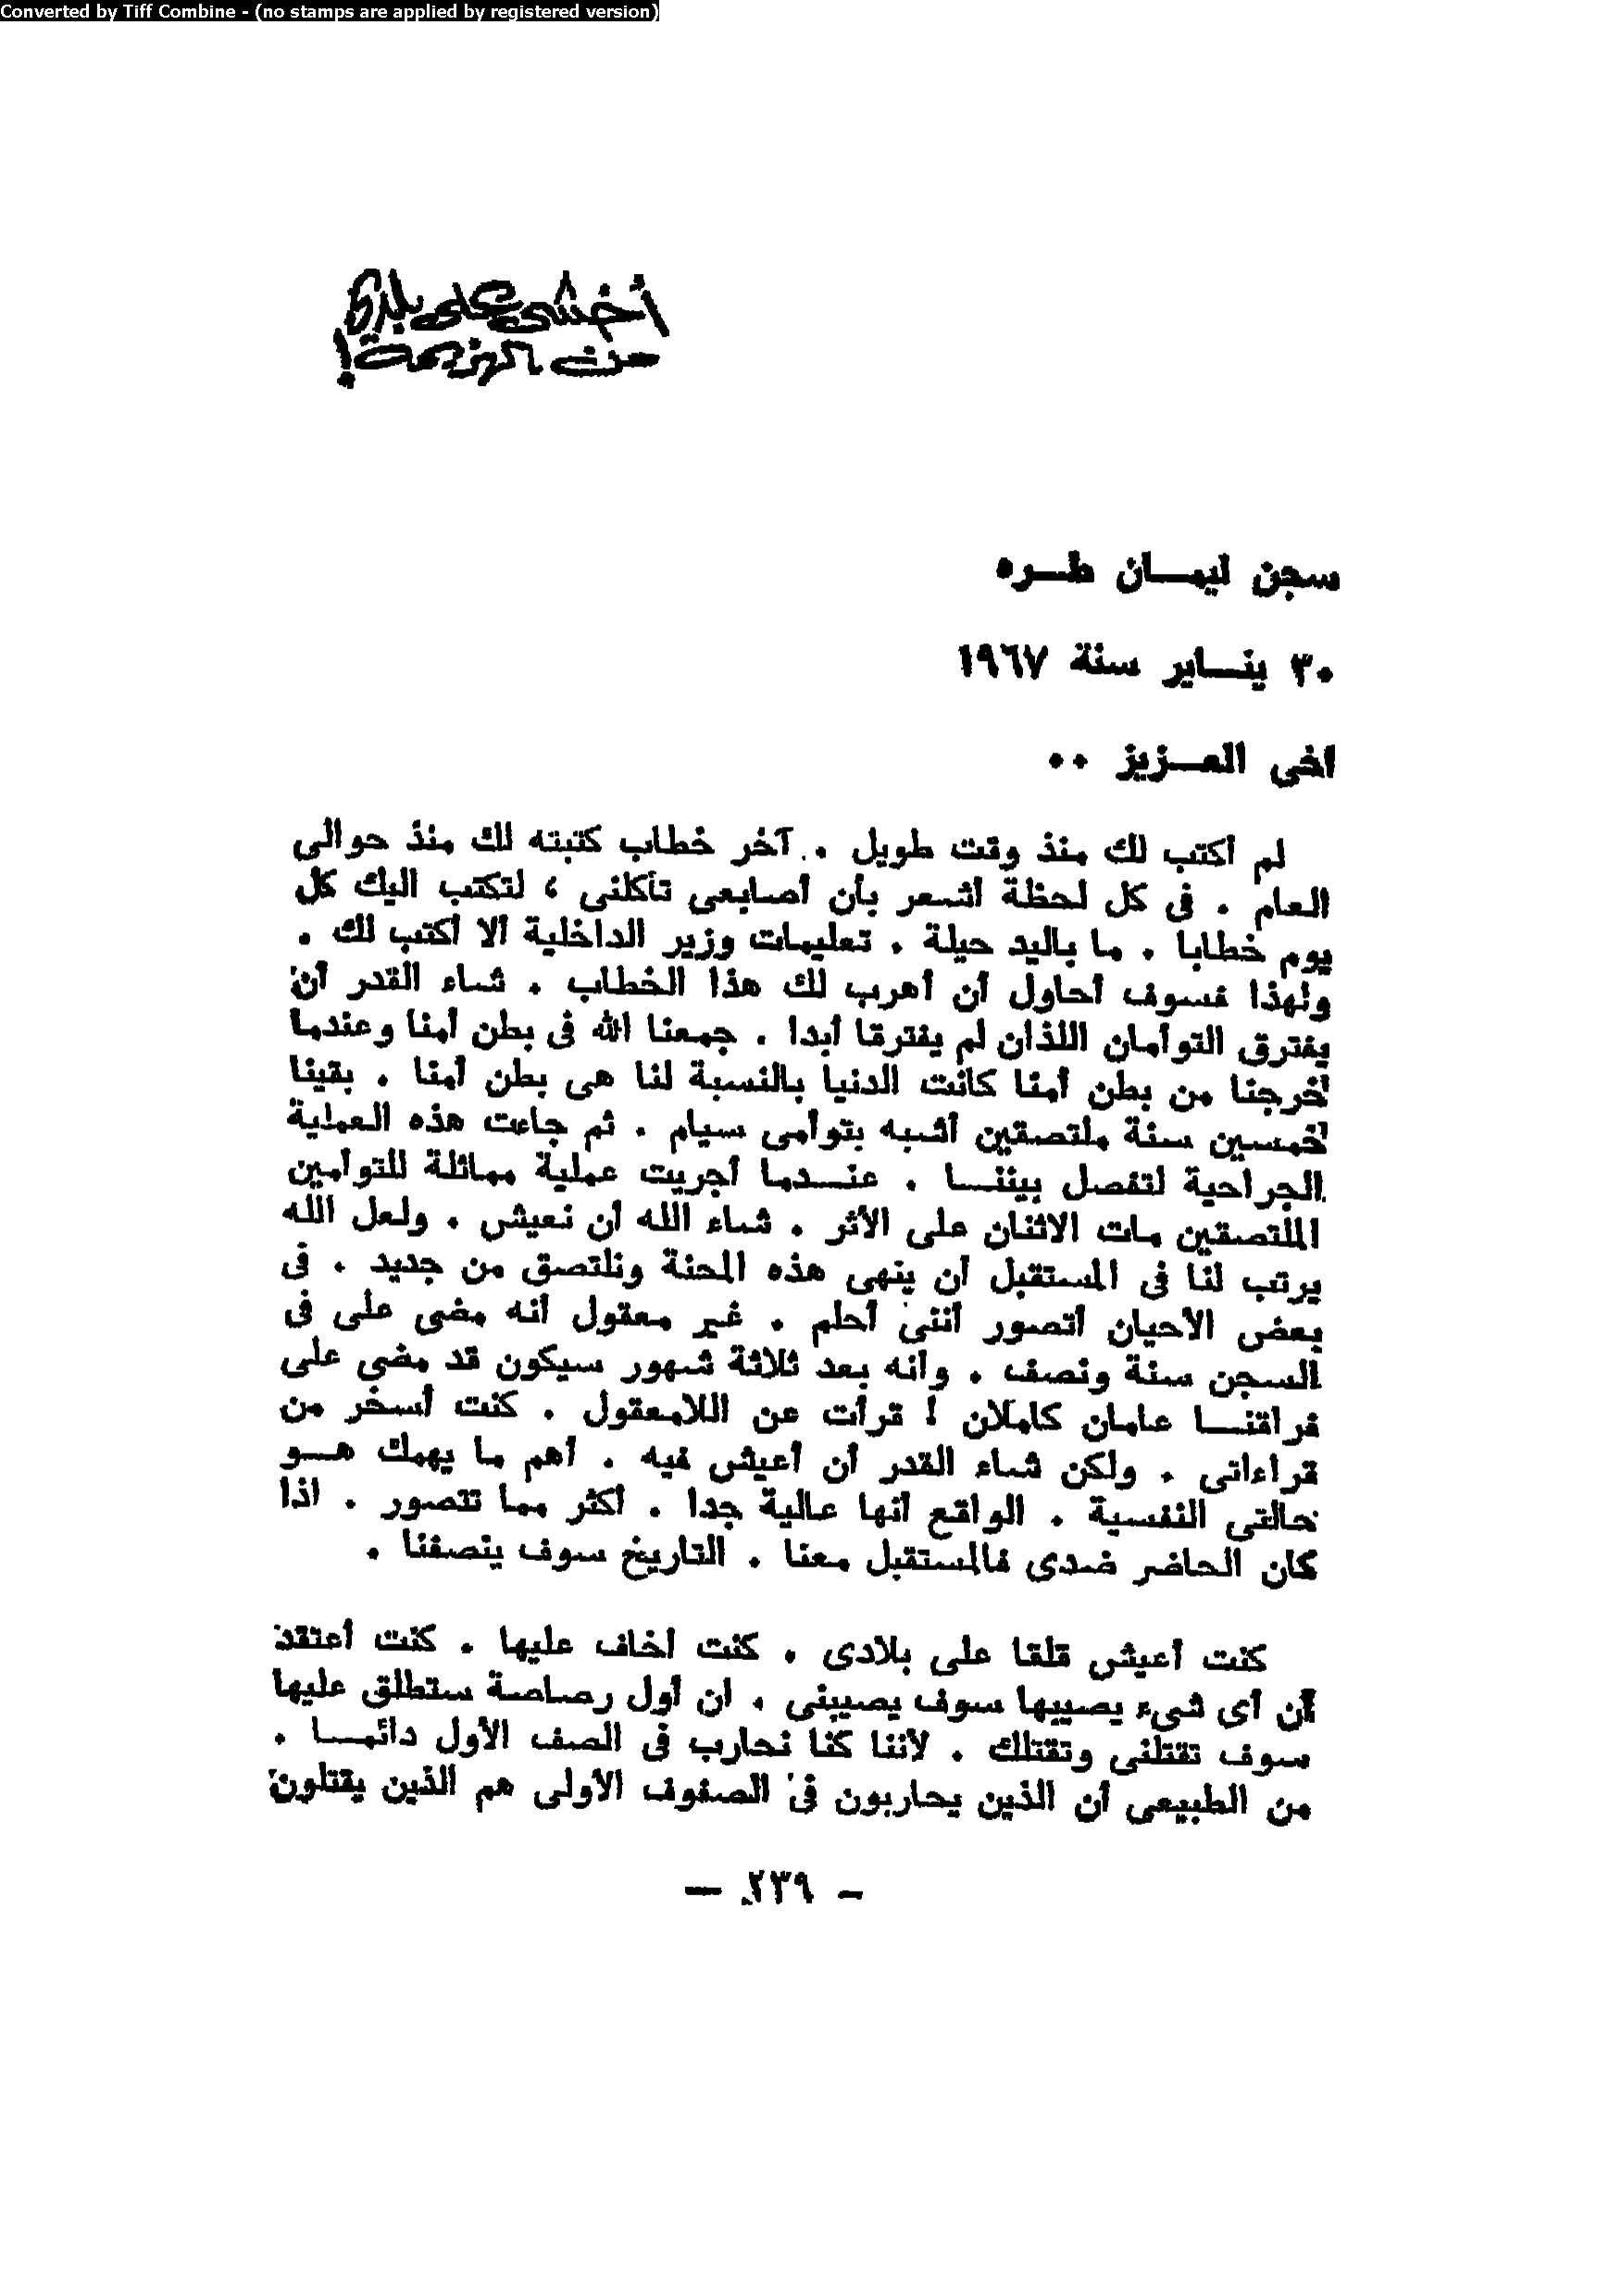 Converted by Tiff Combine - (no stamps are applied by registered version)
أخشى على بلدى
من الهزيمة!
سجن ليمــان طــره
٣٠ ينــاير سنة ١٩٦٧
اخى العــزيز ..
لم أكتب لك منذ وقت طويل . آخر خطاب كتبته لك منذ حوالى
العام . فى كل لحظة أشعر بأن أصابعى تأكلنى ، لتكتب اليك كل
يوم خطابا . ما باليد حيلة . تعليمات وزير الداخلية ألا أكتب لك .
ولهذا فسوف أحاول أن أهرب لك هذا الخطاب . شاء القدر أن
يفترق التوأمان اللذان لم يفترقا أبدا . جمعنا الله فى بطن أمنا وعندما
خرجنا من بطن أمنا كانت الدنيا بالنسبة لنا هى بطن أمنا . بقينا
خمسين سنة ملتصقين أشبه بتوأمى سيام . ثم جاءت هذه العملية
الجراحية لتفصل بيننــا . عنــدما أجريت عملية مماثلة للتوأمين
الملتصقين مات الاثنان على الأثر . شاء الله أن نعيش . ولعل الله
يرتب لنا فى المستقبل أن ينهى هذه المحنة ونلتصق من جديد . فى
بعض الأحيان أتصور أننى أحلم . غير معقول أنه مضى على فى
السجن سنة ونصف . وانه بعد ثلاثة شهور سيكون قد مضى على
فراقنــا عامان كاملان ! قرأت عن اللامعقول . كنت أسخر من
قراءاتى . ولكن شاء القدر أن أعيش فيه . أهم ما يهمك هــو
حالتى النفسية . الواقع أنها عالية جدا . أكثر مما تتصور . اذا
كان الحاضر ضدى فالمستقبل معنا . التاريخ سوف ينصفنا .
كنت أعيش قلقا على بلادى . كنت أخاف عليها . كنت أعتقد
أن أى شىء يصيبها سوف يصيبنى . ان أول رصاصة ستطلق عليها
سوف تقتلنى وتقتلك . لأننا كنا نحارب فى الصف الأول دائمــا .
من الطبيعى أن الذين يحاربون فى الصفوف الأولى هم الذين يقتلون
— ٢٣٩ —